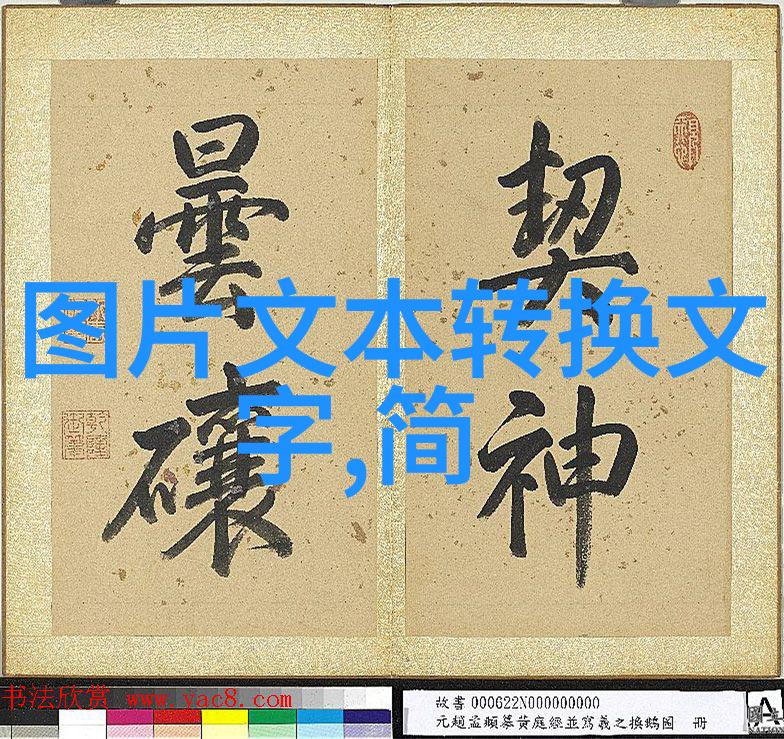 契神
曇礦
图片文本转换文
字,简
书法欣赏 www.yac8.com
故書 000622N000000000
元趙孟頫摹黃庭經並寫羲之換鵝圖 冊